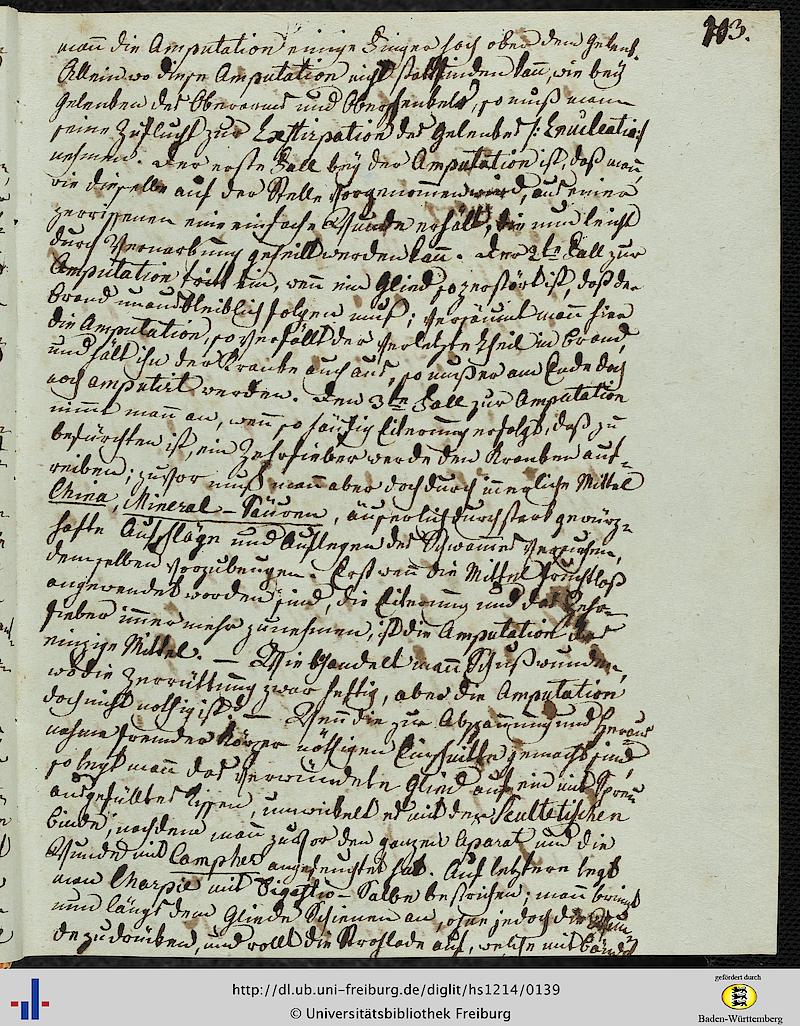 103.
mañ die Amputation einige Finger hoch ober dem Gelenk.
Allein wo diese Amputation nicht stattfinden kañ, wie bey
Gelenken des Oberarms und Oberschenkels, so muß mann
seine Zuflucht zur Exstirpation des Gelenkes /: Enucleatio :/
nehmen. Der erste Fall bey der Amputation ist, daß mañ,
wie dieselbe auf der Stelle vorgenommen wird, aus einer
zerrissenen eine einfache Wunde erhält, die nun leicht
durch Vernarbung geheilt werden kañ. Der 2te Fall zur
Amputation tritt ein, weñ ein Glied so zerstört ist, daß der
Brand unausbleiblich folgen muß; versäumt mañ hier
die Amputation, so verfällt der verletzte Theil in Brand,
und hält ihn der Kranke auch aus, so muß er am Ende doch
noch amputirt werden. Den 3te Fall zur Amputation
nimmt mañ an, weñ so häufig Eiterung erfolgt, daß zu
befürchten ist, ein Zehrfieber werde den Kranken auf-
reiben; zuvor muß mañ aber doch durch innerliche Mittel
China, Mineral-Säuren, äußerlich durch stark gewürz-
hafte Aufschläge und Auflegen des Schwammes versuchen,
demselben vorzubeugen. Erst weñ die Mittel fruchtloß
angewendet worden sind, die Eiterung und das Zehr-
fieber immer mehr zunehmen, ist die Amputation das
einzige Mittel. — Wie behandelt mañ Schußwunden,
wo die Zerrüttung zwar heftig, aber die Amputation
doch nicht nöthig ist? — Weñ die zur Abspannung und Heraus
nahme fremder Körper nöthigen Einschnitte gemacht sind,
so legt mañ das verwundete Glied auf ein mit Spreu
ausgefülltes Kissen, umwickelt es mit der Scultetischen
Binde, nachdem mañ zuvor den ganzen Aparat und die
Wunde mit Campher angefeuchtet hat. Auf letztere legt
man Charpie mit Digestiv-Salbe bestrichen; mañ bringt
nun längs dem Gliede Schienen an, ohne jedoch die Wun
de zu drücken, und rollt die Strohlade auf, welche mit Bänder
http://dl.ub.uni-freiburg.de/diglit/hs1214/0139
© Universitätsbibliothek Freiburg
gefördert durch
Baden-Württemberg